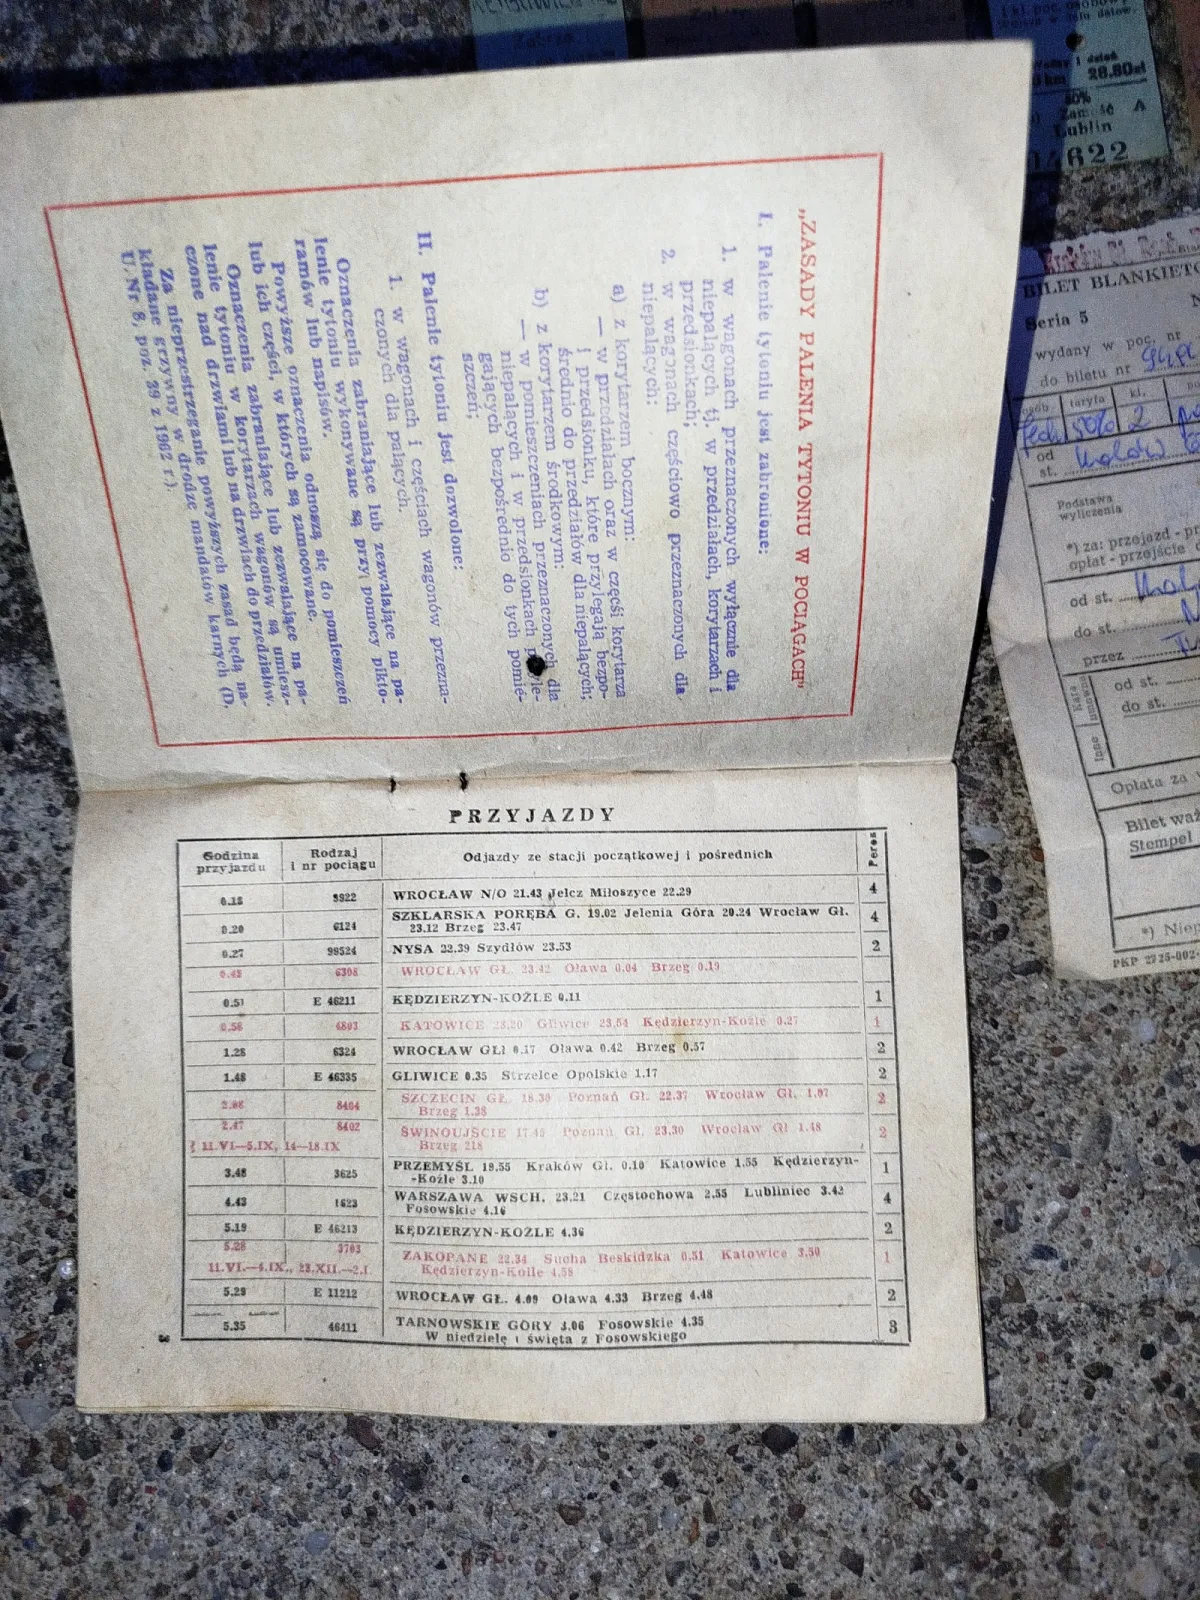 Zabrze
1 kl. poc. osobowy
Ważny 1 dzień
km 28.80zł
50%
Zamość A
Lublin
14622
„ZASADY PALENIA TYTONIU W POCIĄGACH"
I. Palenie tytoniu jest zabronione:
1. w wagonach przeznaczonych wyłącznie dla
niepalących tj. w przedziałach, korytarzach i
przedsionkach;
2. w wagonach częściowo przeznaczonych dla
niepalących:
a) z korytarzem bocznym:
— w przedziałach oraz w części korytarza
i przedsionku, które przylegają bezpo-
średnio do przedziałów dla niepalących;
b) z korytarzem środkowym:
— w pomieszczeniach przeznaczonych dla
niepalących i w przedsionkach przyle-
gających bezpośrednio do tych pomie-
szczeń;
II. Palenie tytoniu jest dozwolone:
1. w wagonach i częściach wagonów przezna-
czonych dla palących.
Oznaczenia zabraniające lub zezwalające na pa-
lenie tytoniu wykonywane są przy pomocy pikto-
ramów lub napisów.
Powyższe oznaczenia odnoszą się do pomieszczeń
lub ich części, w których są zamocowane.
Oznaczenia zabraniające lub zezwalające na pa-
lenie tytoniu w korytarzach wagonów są umiesz-
czone nad drzwiami lub na drzwiach do przedziałów.
Za nieprzestrzeganie powyższych zasad będą na-
kładane grzywny w drodze mandatów karnych (D.
U. Nr 8, poz. 39 z 1962 r.).
BILET BLANKIETO
Seria 5
wydany w poc. nr
do biletu nr
osób taryfa kl.
50% 2
od
st.
Podstawa
wyliczenia
*) za: przejazd - pr
opłat - przejście
od st.
do st.
przez
od st.
do st.
Inne
Opłata za
Bilet waż
Stempel
*) Niep
PKP 2725-002-
PRZYJAZDY
Godzina przyjazdu Rodzaj i nr pociągu Odjazdy ze stacji początkowej i pośrednich Peron
0.18 8922 WROCŁAW N/O 21.43 Jelcz Miłoszyce 22.29 4
0.20 6124 SZKLARSKA PORĘBA G. 19.02 Jelenia Góra 20.24 Wrocław Gł.
23.12 Brzeg 23.47 4
0.27 99524 NYSA 22.39 Szydłów 23.53 2
0.42 6308 WROCŁAW GŁ. 23.42 Oława 0.04 Brzeg 0.19
0.51 E 46211 KĘDZIERZYN-KOŹLE 0.11 1
0.56 4803 KATOWICE 23.20 Gliwice 23.54 Kędzierzyn-Koźle 0.27 1
1.28 6324 WROCŁAW GŁ1 0.17 Oława 0.42 Brzeg 0.57 2
1.48 E 46335 GLIWICE 0.35 Strzelce Opolskie 1.17 2
2.08 8404 SZCZECIN GŁ. 18.30 Poznań Gł. 22.37 Wrocław Gł. 1.07
Brzeg 1.38 2
2.47 8402 ŚWINOUJŚCIE 17.45 Poznań Gł. 23.30 Wrocław Gł 1.48
11.VI—5.IX, 14—18.IX Brzeg 218 2
3.48 3625 PRZEMYŚL 19.55 Kraków Gł. 0.10 Katowice 1.55 Kędzierzyn-
-Koźle 3.10 1
4.43 1623 WARSZAWA WSCH. 23.21 Częstochowa 2.55 Lubliniec 3.42
Fosowskie 4.16 4
5.19 E 46213 KĘDZIERZYN-KOŹLE 4.36 2
5.28 3703 ZAKOPANE 22.34 Sucha Beskidzka 0.51 Katowice 3.50
11.VI.—4.IX., 23.XII.—2.I. Kędzierzyn-Kolle 4.58 1
5.29 E 11212 WROCŁAW GŁ. 4.09 Oława 4.33 Brzeg 4.48 2
5.35 46411 TARNOWSKIE GÓRY 3.06 Fosowskie 4.35
W niedzielę i święta z Fosowskiego 3
3